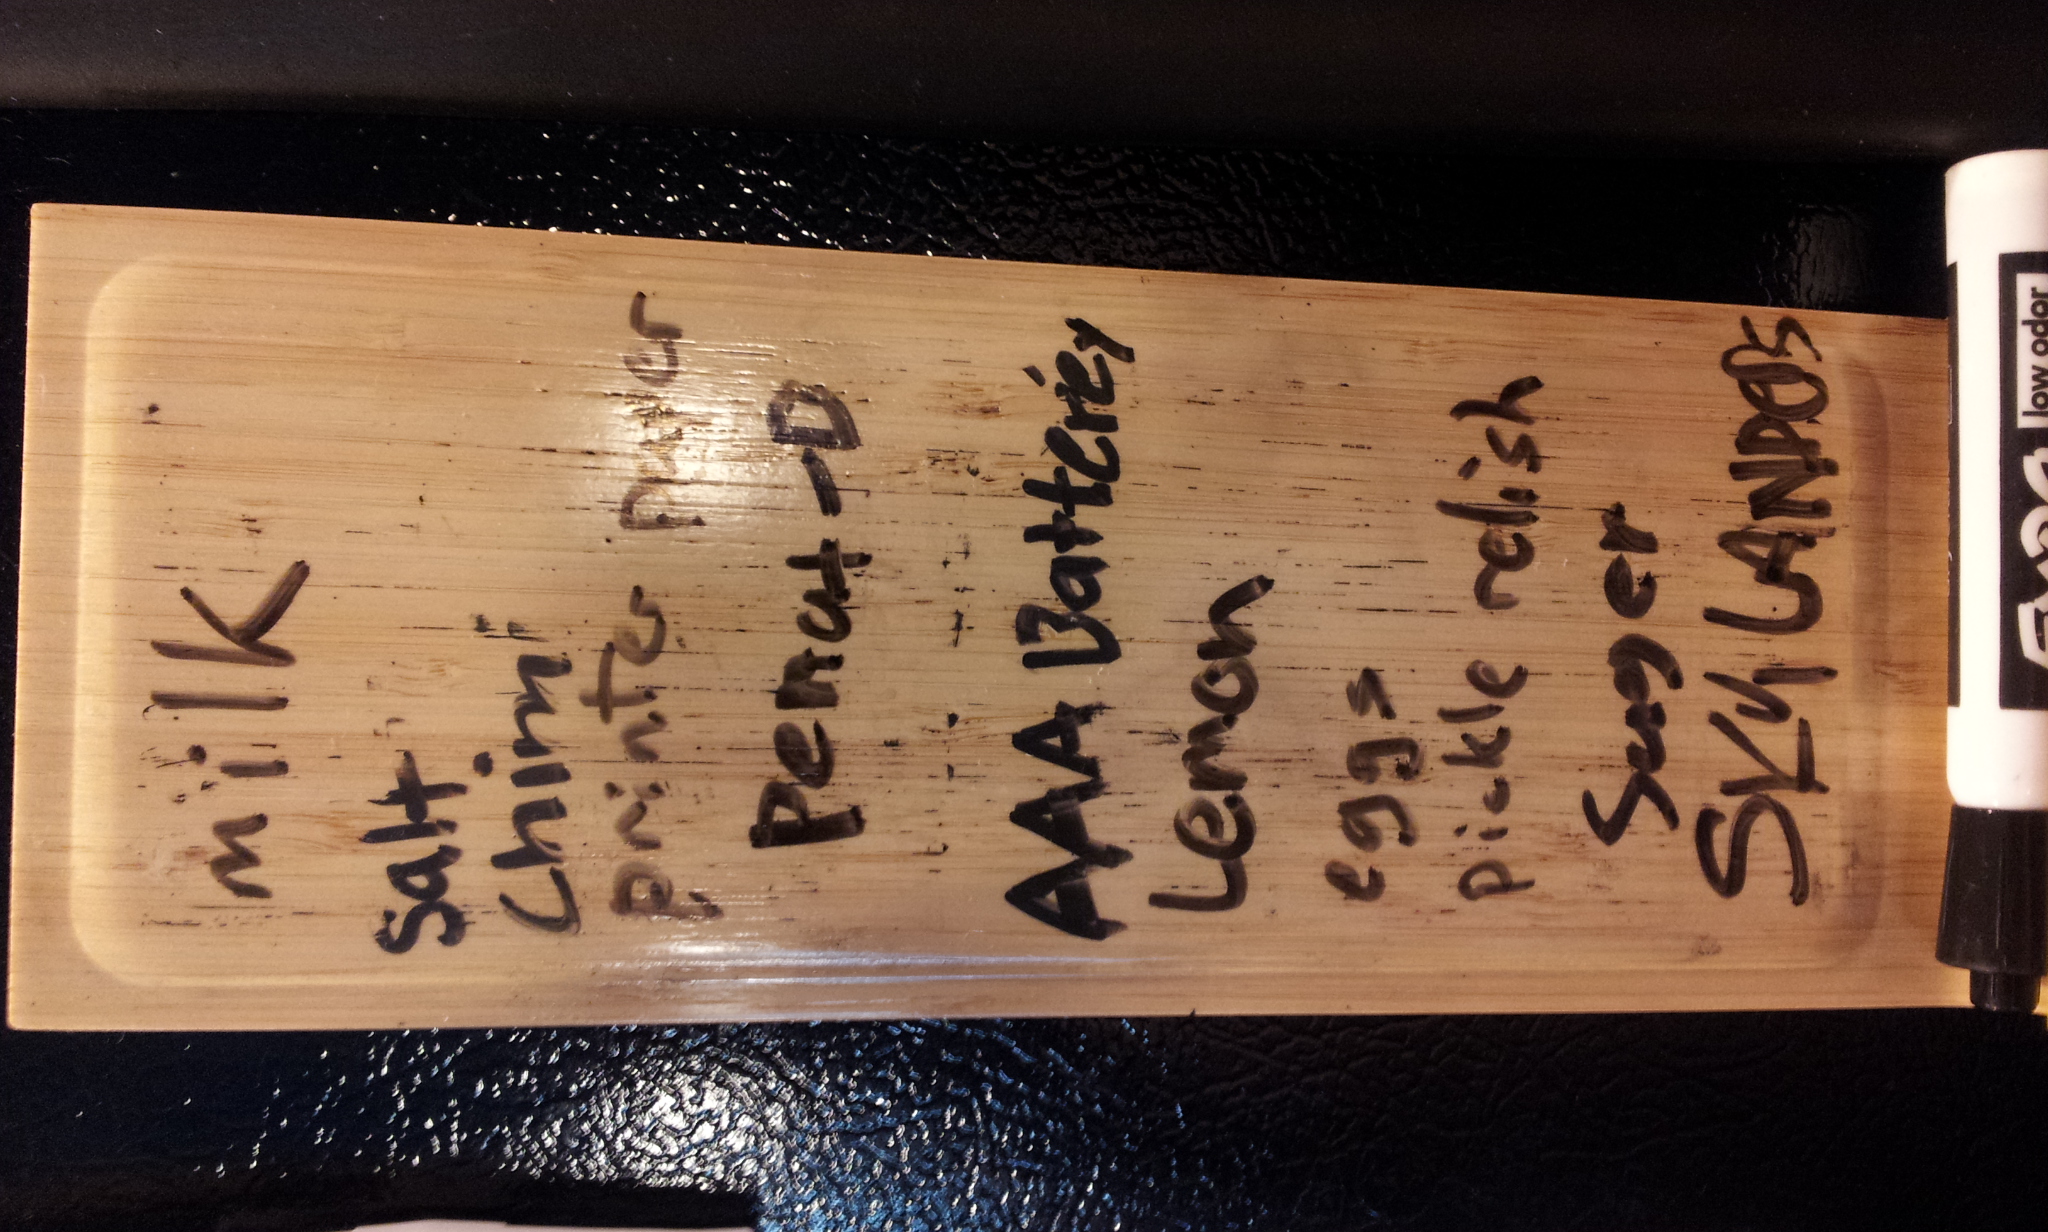 milk
Salt
Chimi
printer paper
Pemat-D
AAA Batteries
Lemon
eggs
pickle relish
Suger
SKY LANDERS
EXPO
low odor